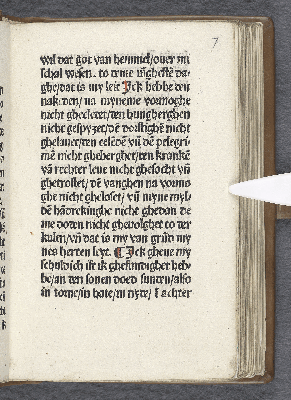 7
wil dat got van hemmel/ouer mi
schal wesen. to deme
ghe/dat is my leit Jck hebbe den
nakeden/ na myneme vormoghe
nicht ghecledet/den hungherghen
nicht gespyzet/dē dorstighē nicht
ghelauet/den elēdē vn̄ dē pelegri
mē nicht gheherberghet/den krankē
vn̄ nicht ghesocht vn̄
ghetrostet/ dē vanghen na vormo
ghe nicht gheloset/ vn̄ myne myl
dē hādrekinghe nicht ghedan de
me doden nicht ghevolghet to der
kulen/vn̄ dat is my van grūd my
nes herten leyt. Jck gheue my
schuldich ik ghesundighet heb
be/an den souen doed sunden/also
in torne/in hate/in nyde/ achter